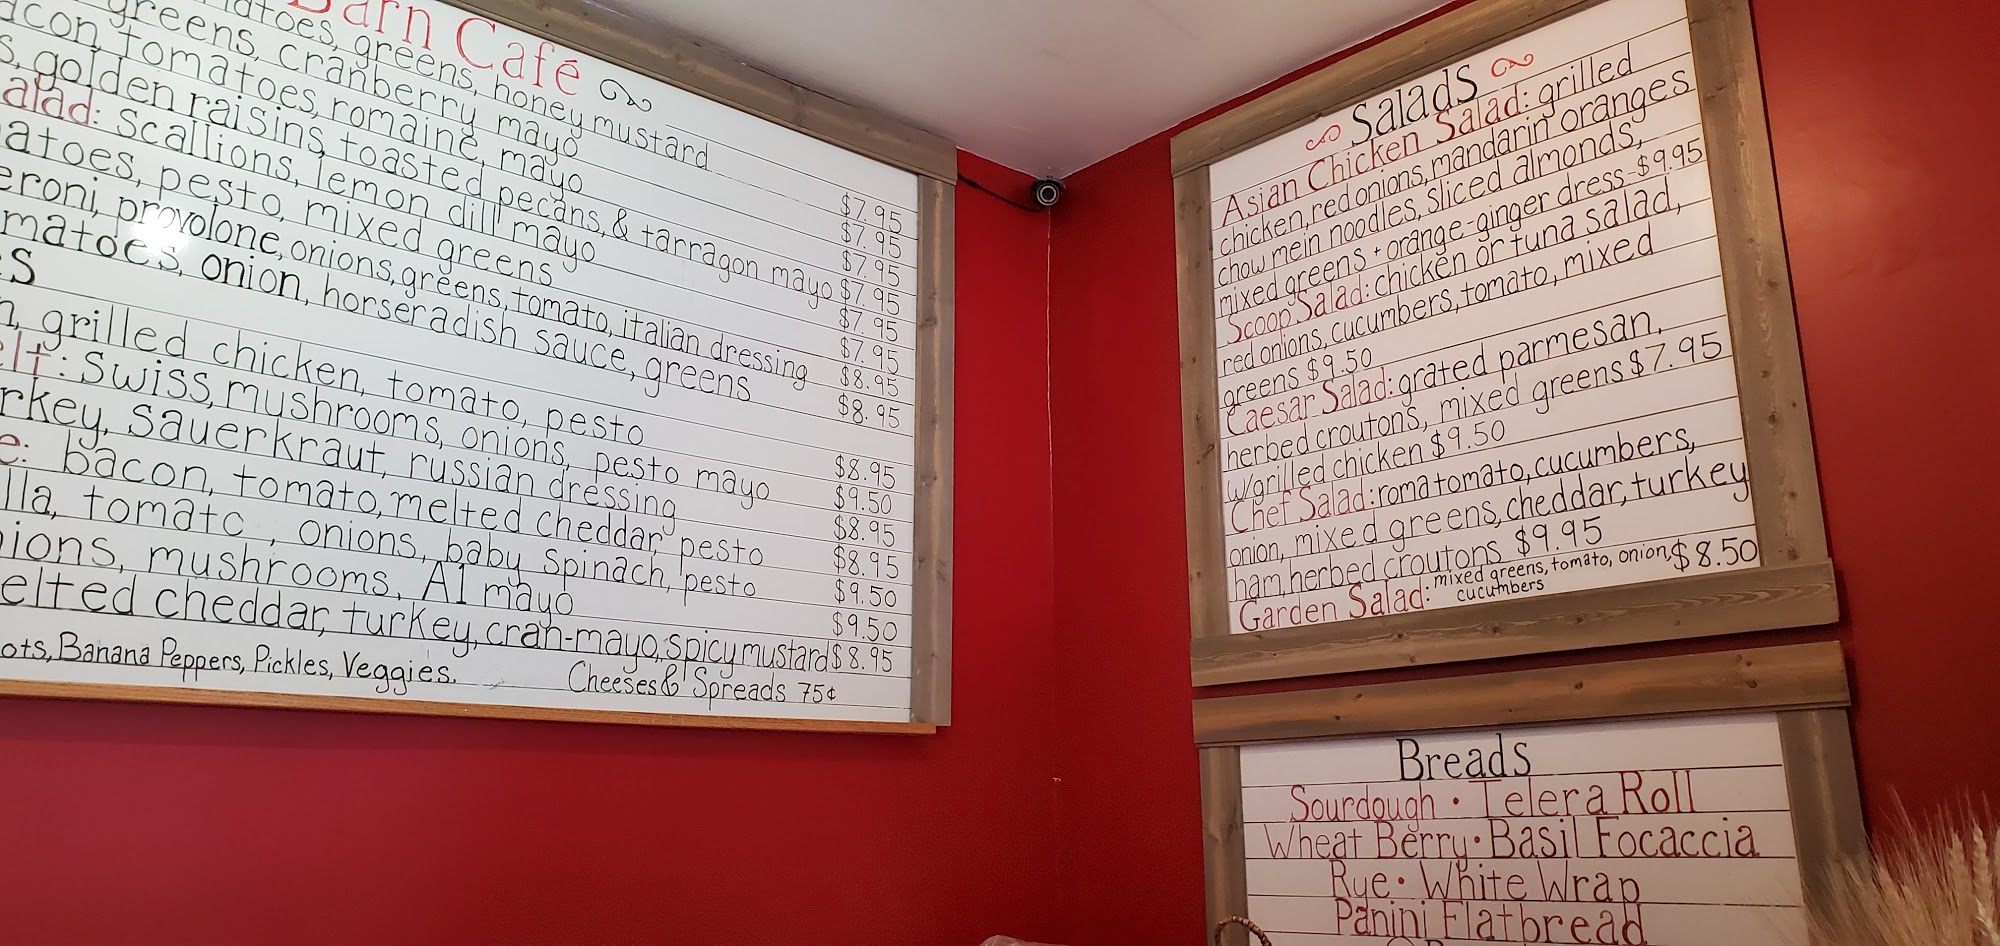 Barn Café
matoes, greens, honey mustard $7.95
greens, cranberry mayo $7.95
bacon, tomatoes, romaine, mayo $7.95
golden raisins, toasted pecans, & tarragon mayo $7.95
alad: scallions, lemon dill mayo $7.95
atoes, pesto, mixed greens $7.95
eroni, provolone, onions, greens, tomato, italian dressing $8.95
matoes, onion, horseradish sauce, greens $8.95
es
n, grilled chicken, tomato, pesto $8.95
elt: Swiss, mushrooms, onions, pesto mayo $9.50
rkey, sauerkraut, russian dressing $8.95
e: bacon, tomato, melted cheddar, pesto $8.95
lla, tomato, onions, baby spinach, pesto $9.50
ions, mushrooms, A1 mayo $9.50
elted cheddar, turkey, cran-mayo, spicy mustard $8.95
ots, Banana Peppers, Pickles, Veggies. Cheeses & Spreads 75¢
Salads
Asian Chicken Salad: grilled
chicken, red onions, mandarin oranges
chow mein noodles, sliced almonds,
mixed greens + orange-ginger dress- $9.95
Scoop Salad: chicken or tuna salad,
red onions, cucumbers, tomato, mixed
greens $9.50
Caesar Salad: grated parmesan,
herbed croutons, mixed greens $7.95
w/grilled chicken $9.50
Chef Salad: roma tomato, cucumbers,
onion, mixed greens, cheddar, turkey
ham, herbed croutons $9.95
Garden Salad: mixed greens, tomato, onion, $8.50
cucumbers
Breads
Sourdough • Telera Roll
Wheat Berry • Basil Focaccia
Rye • White Wrap
Panini Flatbread